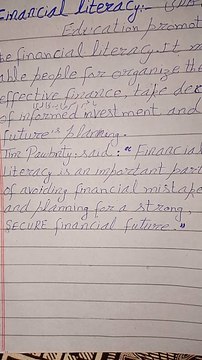 Financial literacy:-
Education promot
financial literacy. It
able people for organize the
effective finance, take dec
of informed investment and
future's planning.
Tim said: "Financial
literacy is an important part
of avoiding financial mistake
and planning for a strong,
SECURE financial future."